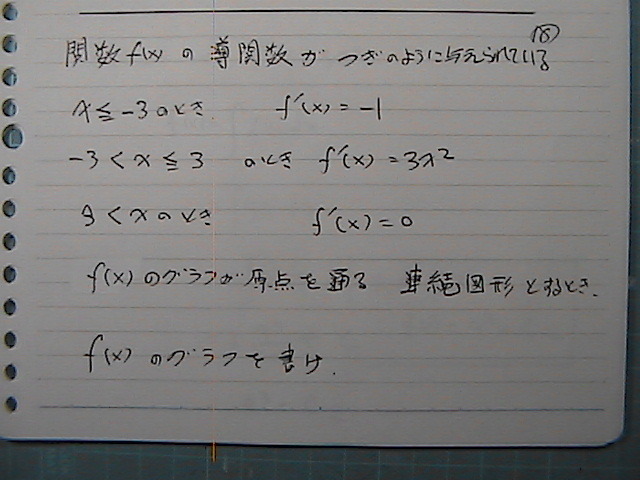 ⑱
関数f(x) の 導関数が つぎのように与えられている
x≦-3のとき f'(x)=-1
-3<x≦3 のとき f'(x)=3x²
3<xのとき f'(x)=0
f(x)のグラフが原点を通る 連続図形とするとき.
f(x)のグラフを書け.